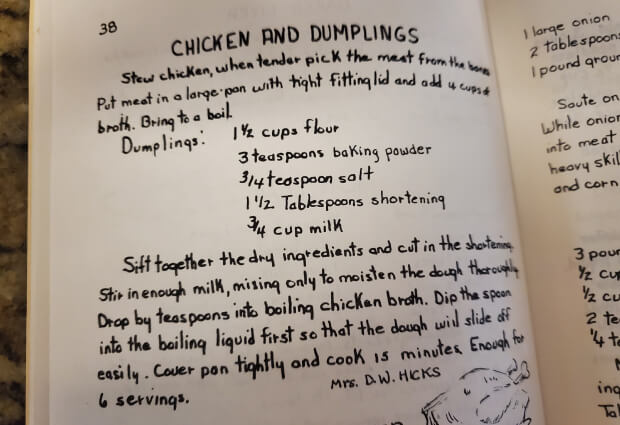 38
CHICKEN AND DUMPLINGS
Stew chicken, when tender pick the meat from the bones
Put meat in a large pan with tight fitting lid and add 4 cups of
broth. Bring to a boil.
Dumplings:
1 1/2 cups flour
3 teaspoons baking powder
3/4 teaspoon salt
1 1/2 Tablespoons shortening
3/4 cup milk
Sift together the dry ingredients and cut in the shortening.
Stir in enough milk, mising only to moisten the dough thoroughly
Drop by teaspoons into boiling chicken broth. Dip the spoon
into the boiling liquid first so that the dough will slide off
easily. Cover pan tightly and cook 15 minutes. Enough for
6 servings.
Mrs. D.W. HICKS
1 large onion
2 tablespoons
1 pound
Saute
While
into meat
heavy
and corn
3
1/2
1/2
2
1/4